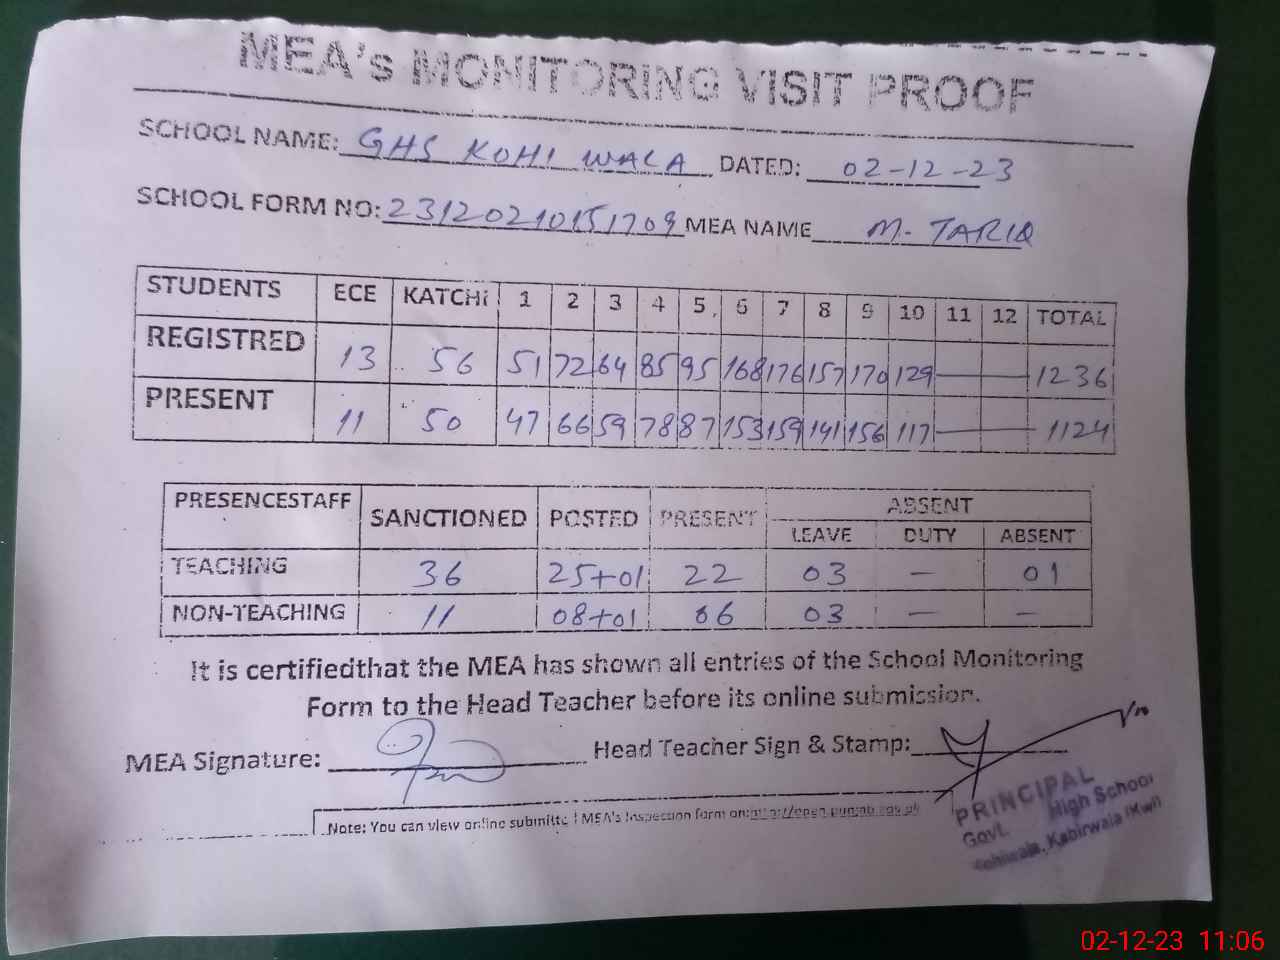 MEA's MONITORING VISIT PROOF
SCHOOL NAME: GHS KOHI WALA DATED: 02-12-23
SCHOOL FORM NO: 23120210151709 MEA NAME M. TARIQ
STUDENTS ECE KATCHI 1 2 3 4 5 6 7 8 9 10 11 12 TOTAL
REGISTRED 13 56 51 72 64 85 95 168 176 157 170 129 — 1236
PRESENT 11 50 47 66 59 78 87 153 159 141 156 117 — 1124
PRESENCESTAFF SANCTIONED POSTED PRESENT ABSENT
LEAVE DUTY ABSENT
TEACHING 36 25+01 22 03 — 01
NON-TEACHING 11 08+01 06 03 — —
It is certifiedthat the MEA has shown all entries of the School Monitoring
Form to the Head Teacher before its online submission.
MEA Signature: Head Teacher Sign & Stamp:
Note: You can view online submitted MEA's Inspection form on:http://open.punjab.gov.pk
PRINCIPAL
Govt. High School
Kohiwala, Kabirwala (Kwl)
02-12-23 11:06